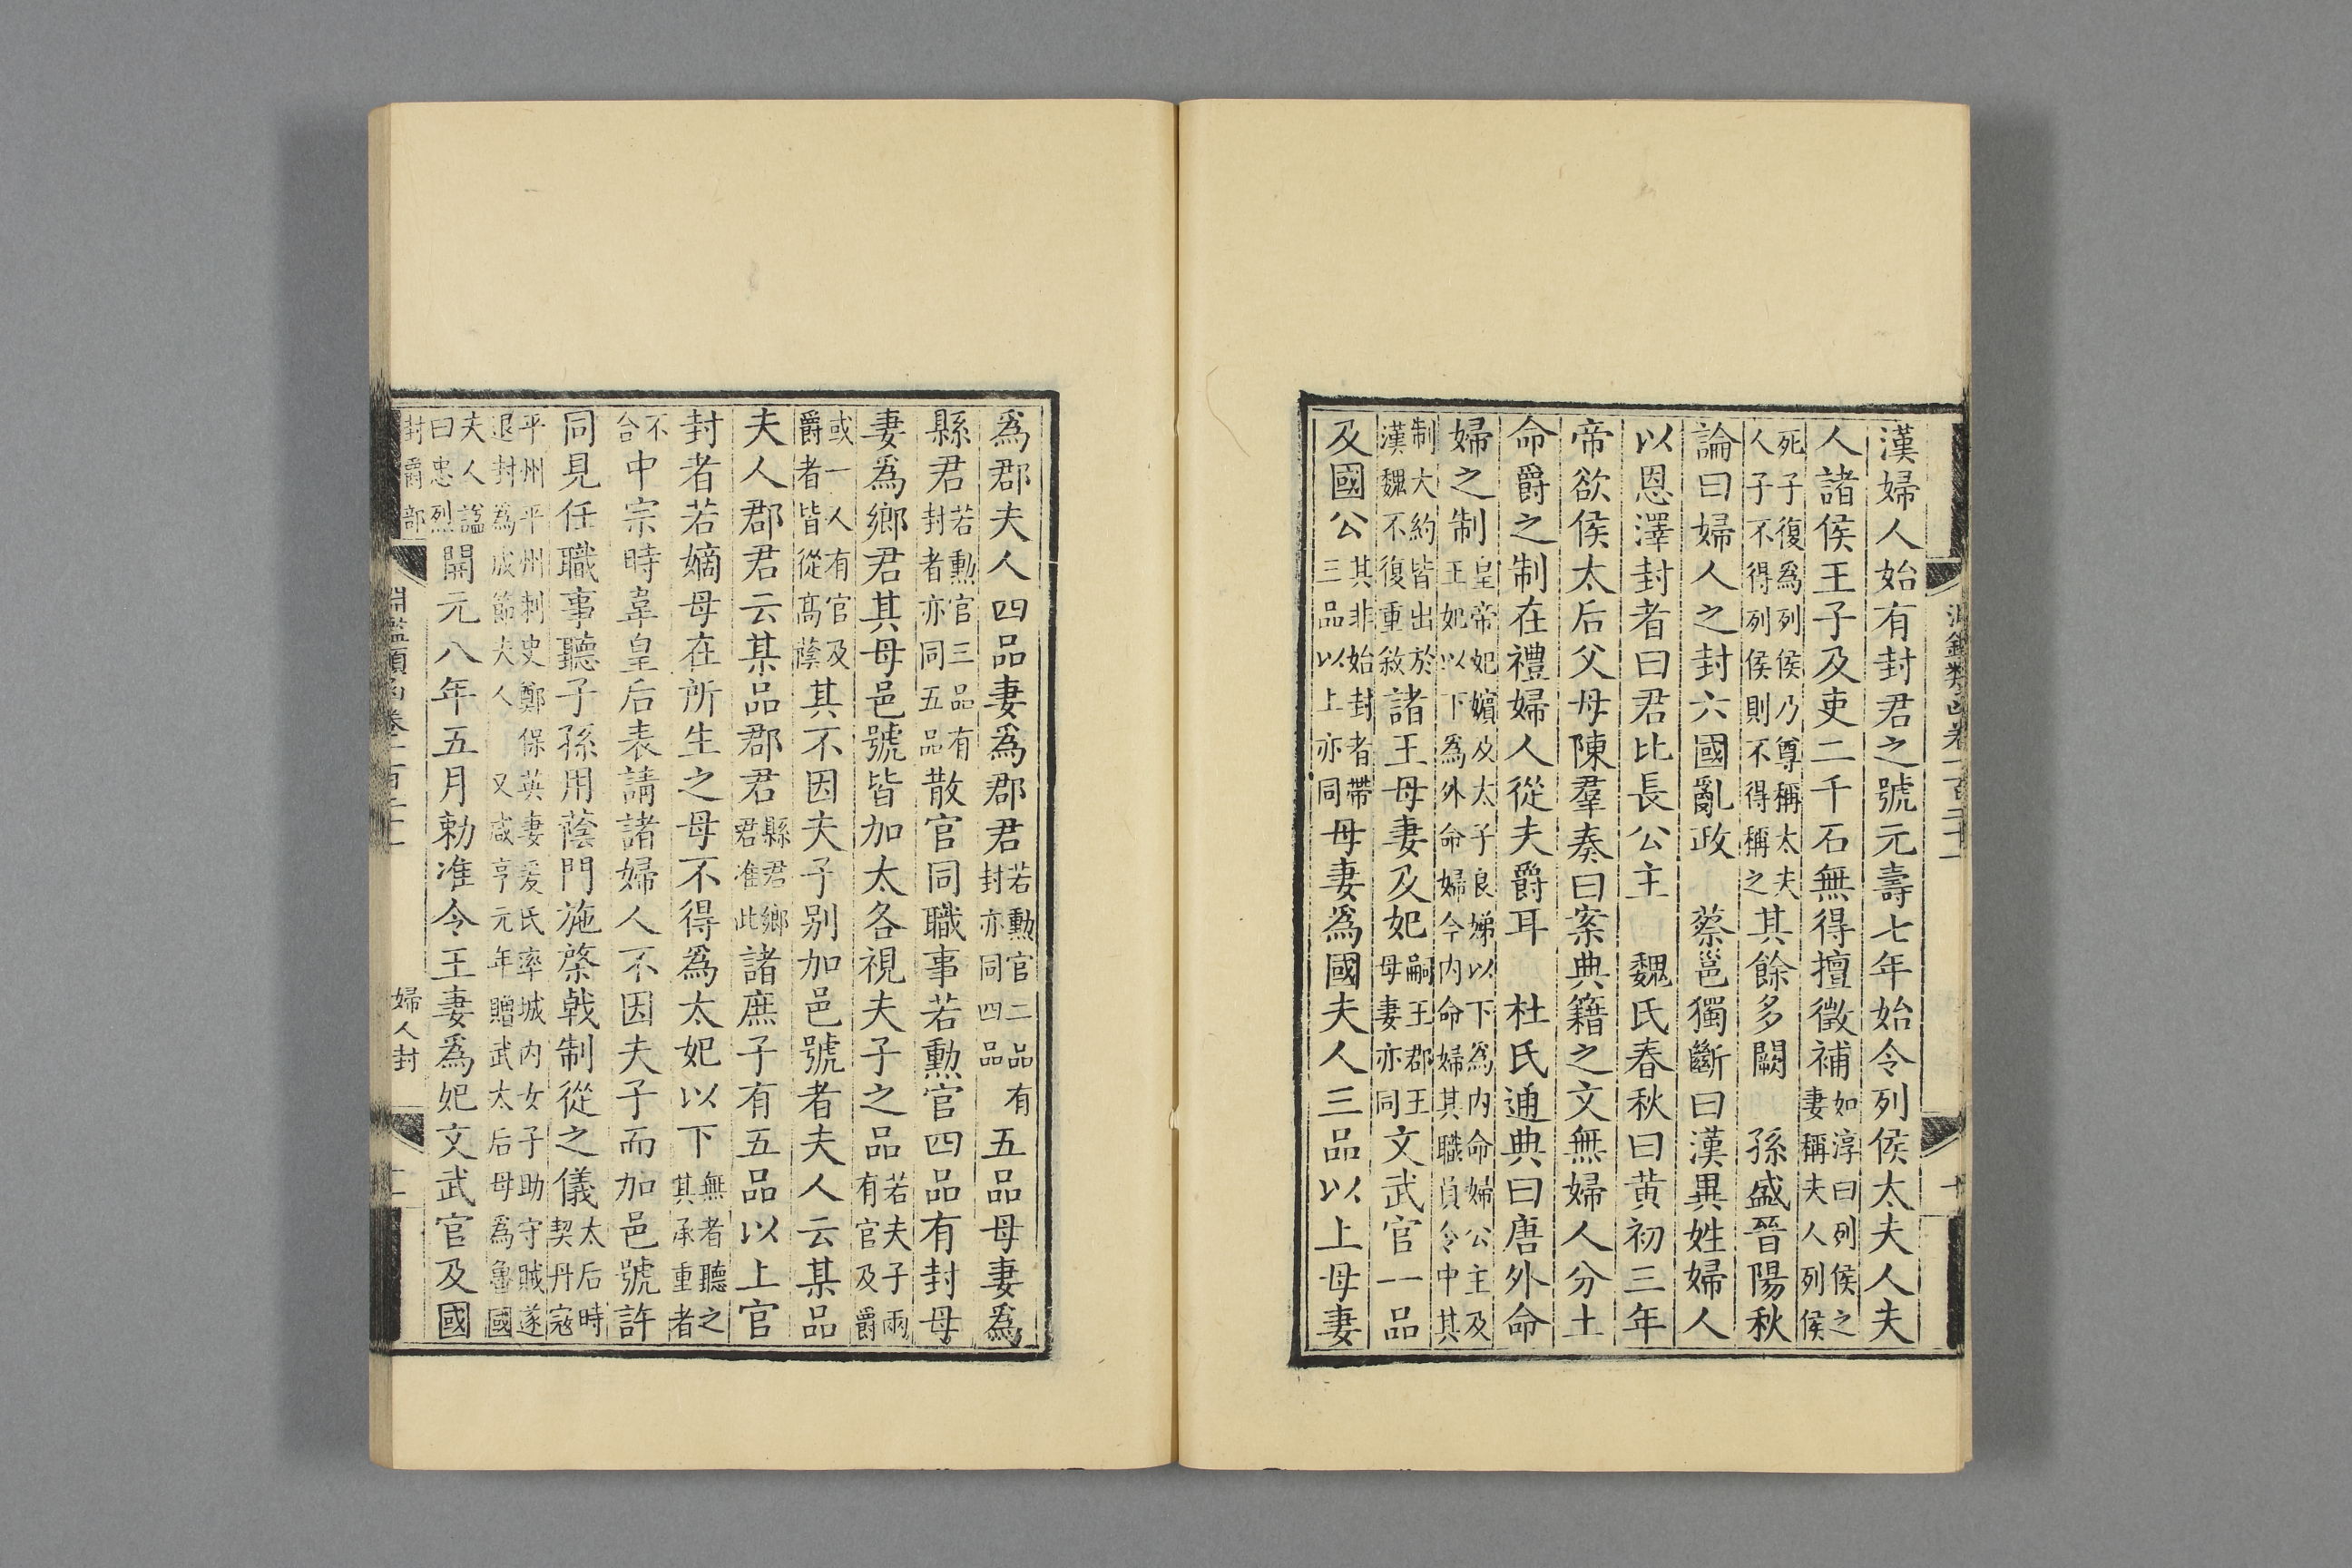 漢婦人始有封君之號元壽七年始令列侯太夫人夫
人諸侯王子及吏二千石無得擅徵補如淳曰列侯之妻稱夫人列侯
死子復爲列侯乃尊稱太夫人子不得列侯則不得稱之其餘多闕 孫盛晉陽秋
論曰婦人之封六國亂政 蔡邕獨斷曰漢異姓婦人
以恩澤封者曰君比長公主 魏氏春秋曰黃初三年
帝欲侯太后父母陳羣奏曰案典籍之文無婦人分土
命爵之制在禮婦人從夫爵耳 杜氏通典曰唐外命
婦之制皇帝妃嬪及太子良娣以下爲内命婦公主及王妃以下爲外命婦今内命婦其職員令中其
制大約皆出於漢魏不復重敘諸王母妻及妃嗣王郡王母妻亦同文武官一品
及國公其非始封者帶三品以上亦同母妻爲國夫人三品以上母妻
爲郡夫人四品妻爲郡君若勳官二品有封亦同四品五品母妻爲
縣君若勳官三品有封者亦同五品散官同職事若勳官四品有封母
妻爲鄉君其母邑號皆加太各視夫子之品若夫子兩有官及爵
或一人有官及爵者皆從高蔭其不因夫子别加邑號者夫人云某品
夫人郡君云某品郡君縣君鄉君准此諸庶子有五品以上官
封者若嫡母在所生之母不得爲太妃以下無者聽之其承重者
不合中宗時韋皇后表請諸婦人不因夫子而加邑號許
同見任職事聽子孫用蔭門施棨戟制從之儀太后時契丹寇
平州平州刺史鄭保英妻奚氏率城内女子助守賊遂退封爲成節夫人 又咸亨元年贈武太后母爲魯國
夫人諡曰忠烈開元八年五月勅准令王妻爲妃文武官及國
封爵部
淵鑑類函卷一百二十一
婦人封